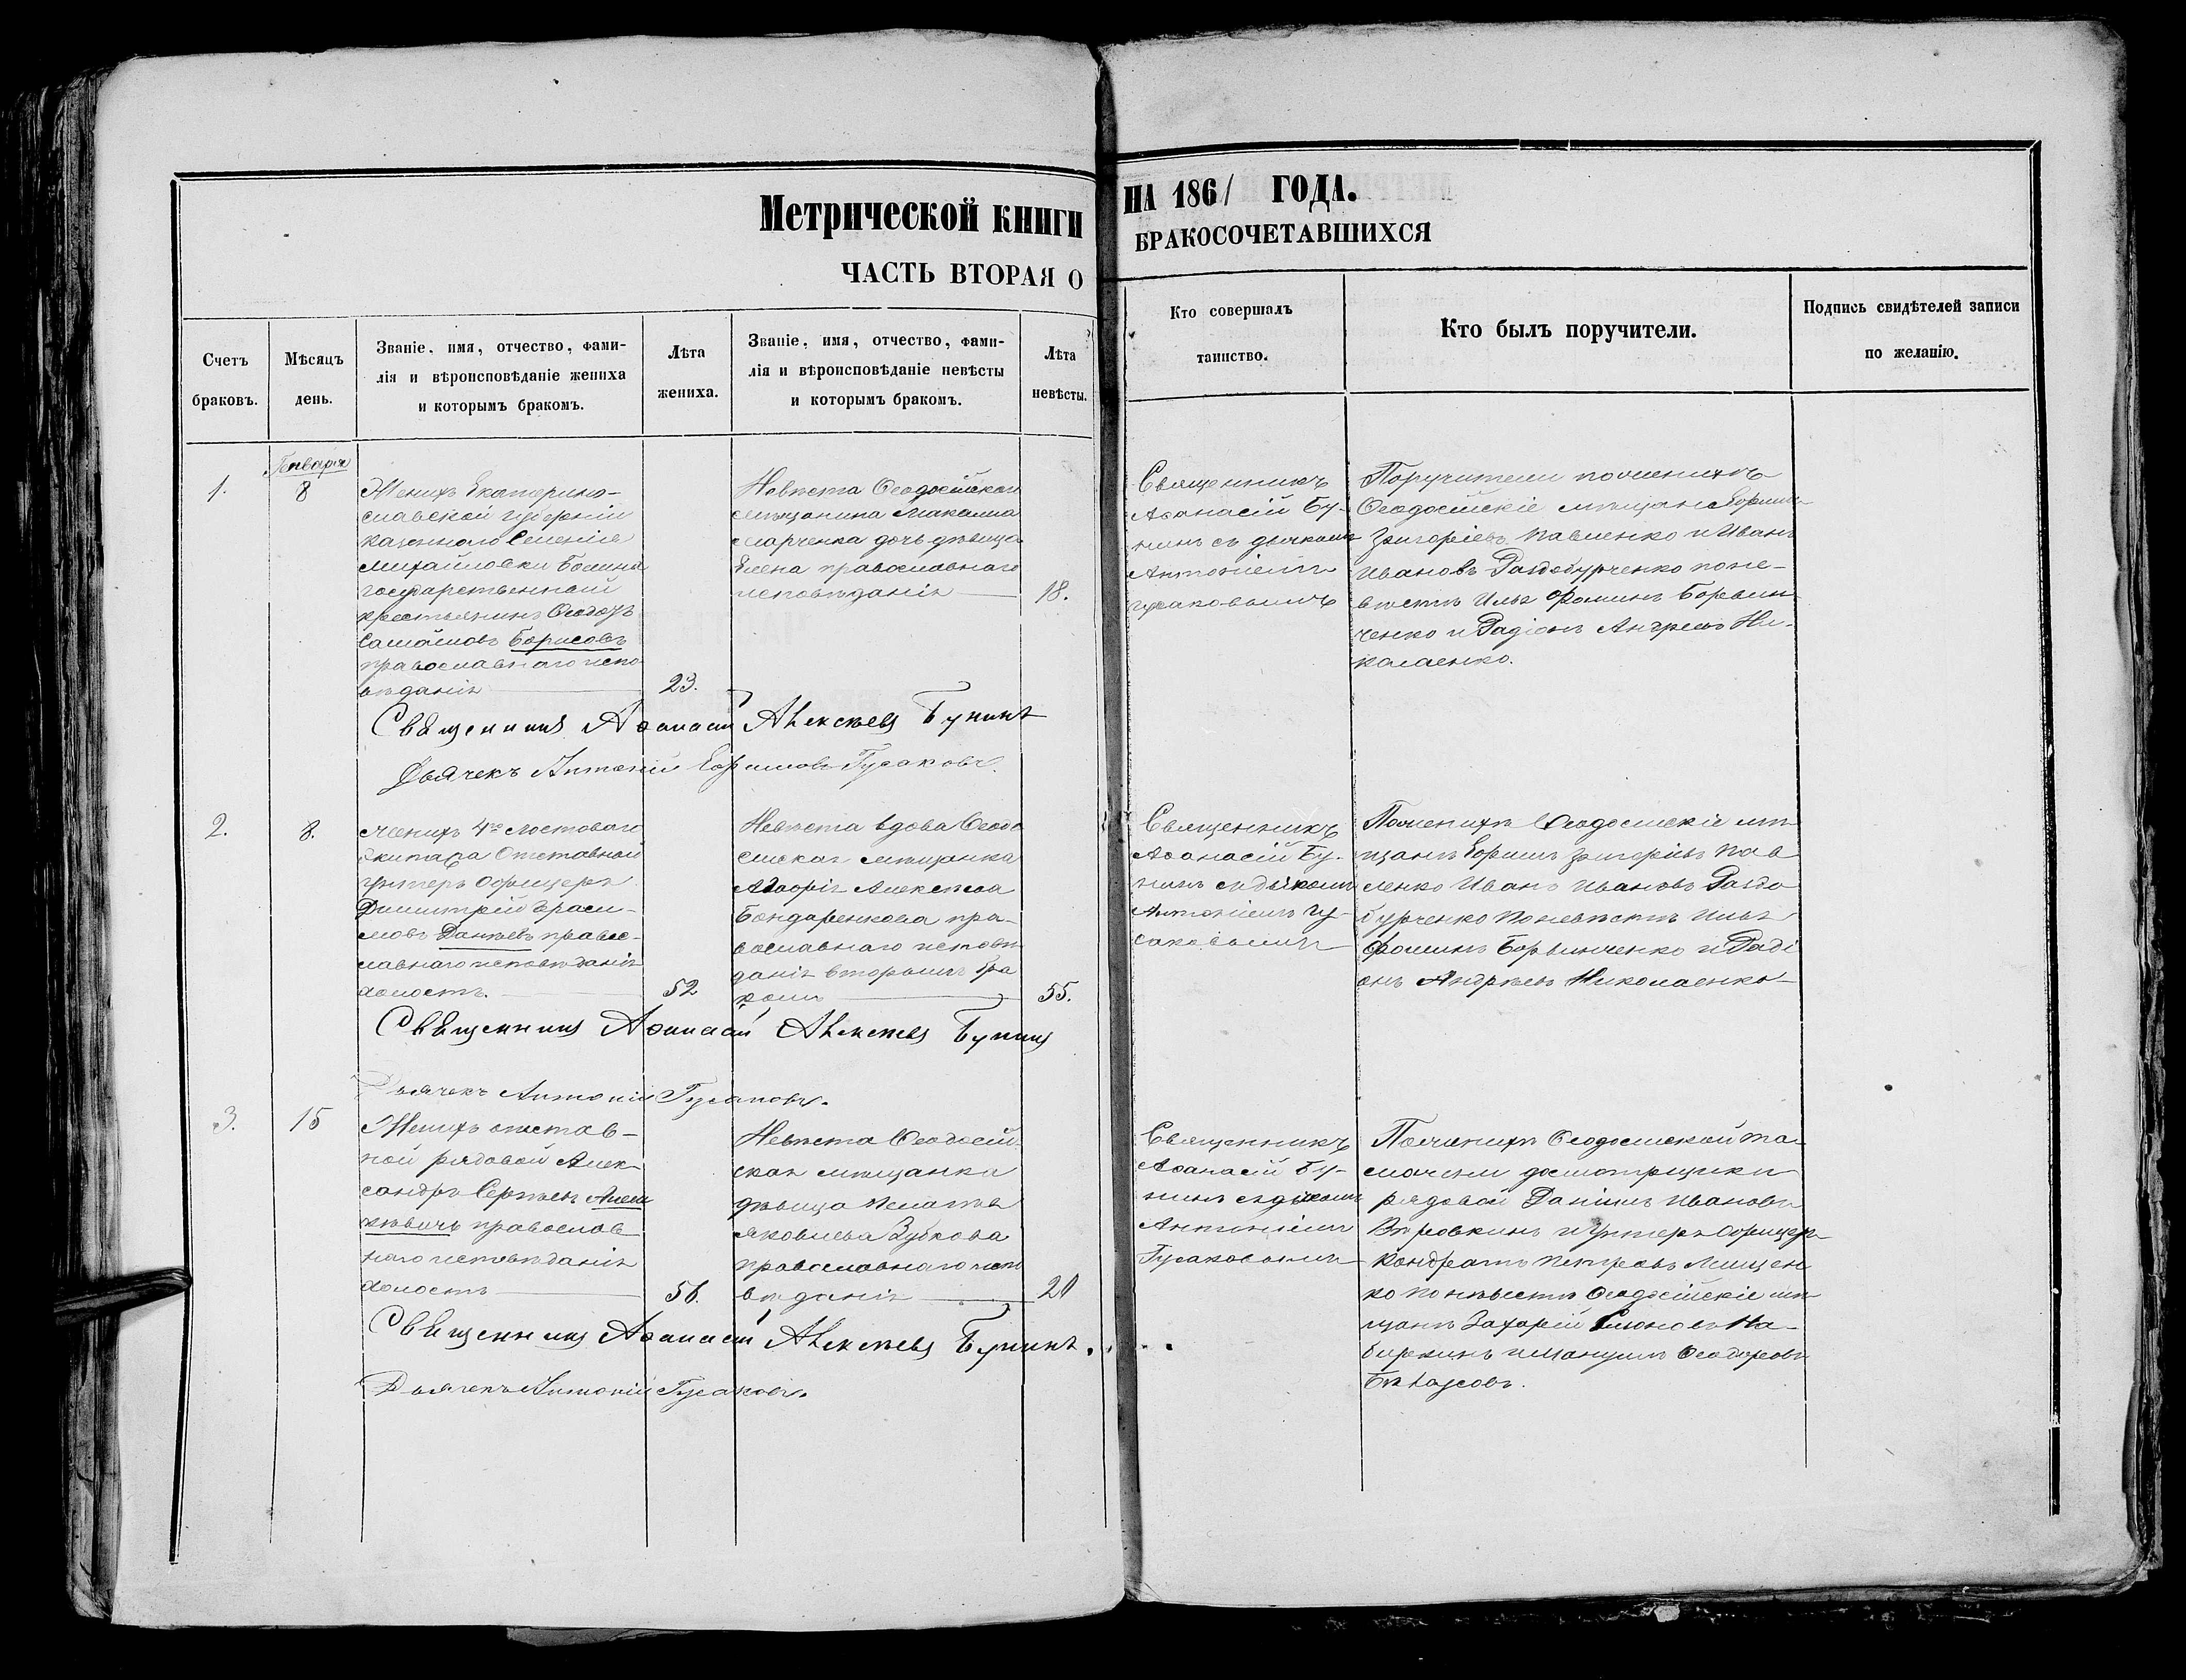 Метрической книги
НА 1861 ГОДА.
ЧАСТЬ ВТОРАЯ О
БРАКОСОЧЕТАВШИХСЯ
Счетъ
браковъ.
Мѣсяцъ
день.
Званіе, имя, отчество, фами-
лія и вѣроисповѣданіе жениха
и которымъ бракомъ.
Лѣта
жениха.
Званіе, имя, отчество, фами-
лія и вѣроисповѣданіе невѣсты
и которымъ бракомъ.
Лѣта
невѣсты.
Кто совершалъ
таинство.
Кто былъ поручители.
Подпись свидѣтелей записи
по желанію.
Января
1.
8
Женихъ Екатерино-
славской губерніи
казеннаго Селенія
Михайловки
государственный
крестьянинъ Ѳеодоръ
Борисовъ
православнаго испо
вѣданія
23.
Невѣста Ѳеодосійскаго
мѣщанина
Марченка дочь дѣвица
Елена православнаго
исповѣданія
18.
Священникъ
Аѳанасій Бу-
нинъ съ дьячкомъ
Антоніемъ
Гусаковымъ
Поручители по женихѣ
Ѳеодосійскіе мѣщане Ефимъ
Григорьевъ Павленко и Иванъ
Ивановъ Раздобурченко по не-
вѣстѣ Илья Фоминъ
ченко и Радіонъ Андреевъ Ни-
колаенко.
Священникъ Аѳанасій Алексѣевъ Бунинъ
Дьячекъ Антоній Ефимовъ Гусаковъ.
2.
8.
Женихъ 4го ластоваго
экипажа Отставной
унтеръ офицеръ
Димитрій Гераси-
мовъ Данѣевъ правос-
лавнаго исповѣданія
холостъ.
52
Невѣста вдова Ѳеодо
сійская мѣщанка
Алексѣева
Бондаренкова пра-
вославнаго исповѣ
данія вторымъ бра
комъ
55.
Священникъ
Аѳанасій Бу-
нинъ съ дьячкомъ
Антоніемъ Гу-
саковымъ
По женихѣ Ѳеодосійскіе мѣ
щане Ефимъ Григорьевъ Пав
ленко Иванъ Ивановъ Раздо
бурченко По невѣстѣ Илья
Фоминъ и Раді
онъ Андреевъ Николаенко
Священникъ Аѳанасій Алексѣевъ Бунинъ
Дьячекъ Антоній Гусаковъ.
3.
15
Женихъ отстав-
ной рядовой Алек-
сандръ Сергѣевъ
православ
наго исповѣданія
холостъ
56.
Невѣста Ѳеодосій
ская мѣщанка
дѣвица Пелагея
Яковлева Зубкова
православнаго испо
вѣданія
21
Священникъ
Аѳанасій Бу-
нинъ съ дьячкомъ
Антоніемъ
Гусаковымъ
По женихѣ Ѳеодосійской та-
можни досмотрщики
рядовой Даніилъ Ивановъ
Веровкинъ и Унтеръ Офицеръ
Кондратъ Петровъ Мищен
ко По невѣстѣ Ѳеодосійскіе мѣ
щане Захарій
и Мануилъ Ѳеодоровъ
Бѣлоусовъ.
Священникъ Аѳанасій Алексѣевъ Бунинъ.
Дьячекъ Антоній Гусаковъ.